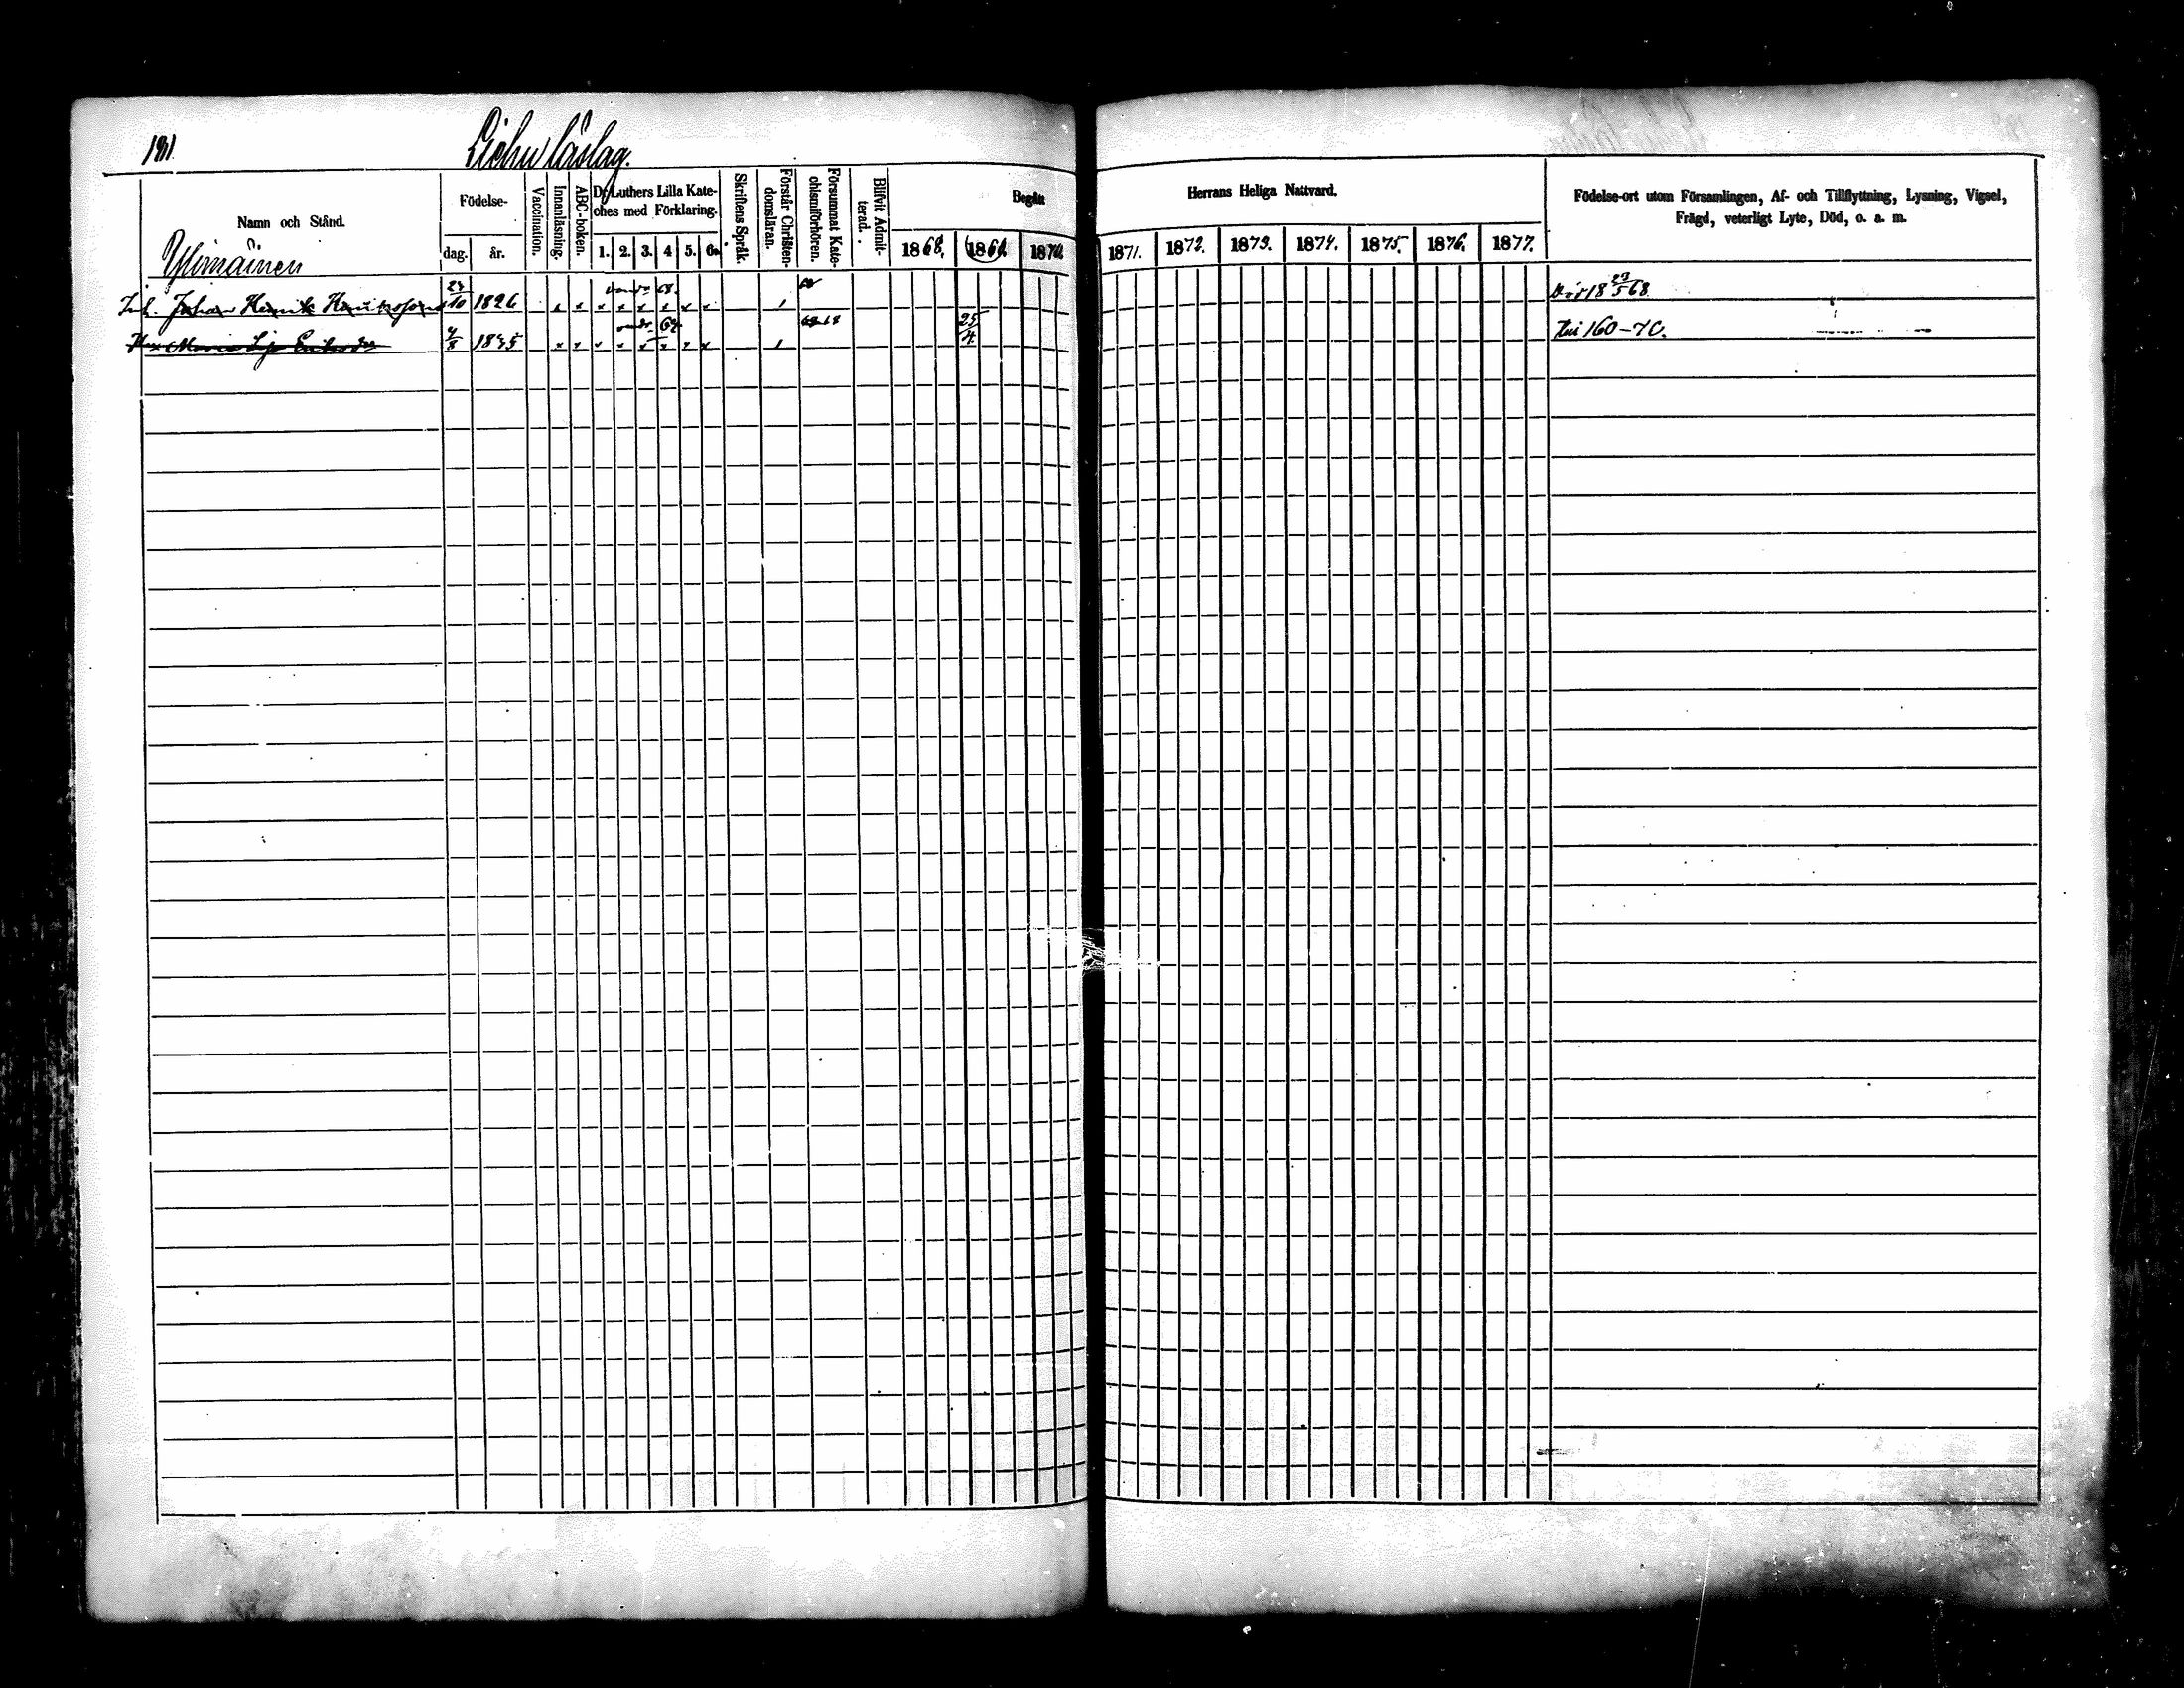 181.
Lichu låslag.
Namn och Stånd.
Födelse-
dag.
år.
Vaccination.
Innanläsning.
ABC-boken.
Dr Luthers Lilla Kate-
ches med Förklaring.
1. 2. 3. 4 5. 6.
Skriftens Språk.
Förstår Christen-
domsläran.
Försummat Kate-
chismiförhören.
Blifvit Admit-
terad.
Begått
1868. 1869. 1870.
Herrans Heliga Nattvard.
1871. 1872. 1873. 1874. 1875. 1876. 1877.
Födelse-ort utom Församlingen, Af- och Tillflyttning, Lysning, Vigsel,
Frägd, veterligt Lyte, Död, o. a. m.
Ylimäinen
Inh. Johan Henrik Henriksson 10 1826 68. Död 18 23/5 68
Maria 8 1835 25/4 160-70.